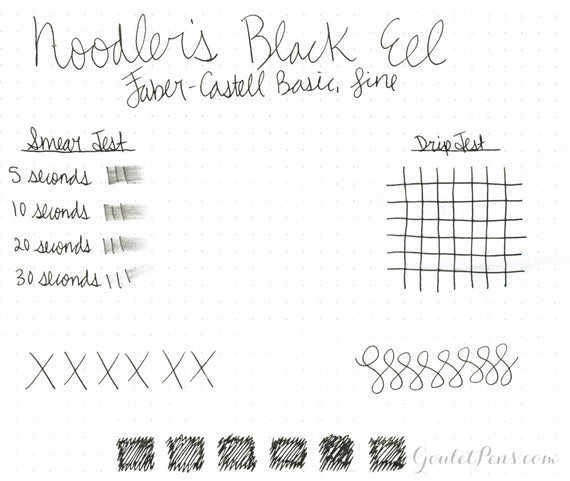 Noodler's Black Eel
Faber-Castell Basic, fine
Smear Test
5 seconds
10 seconds
20 seconds
30 seconds
Drip Test
X X X X X X
GouletPens.com